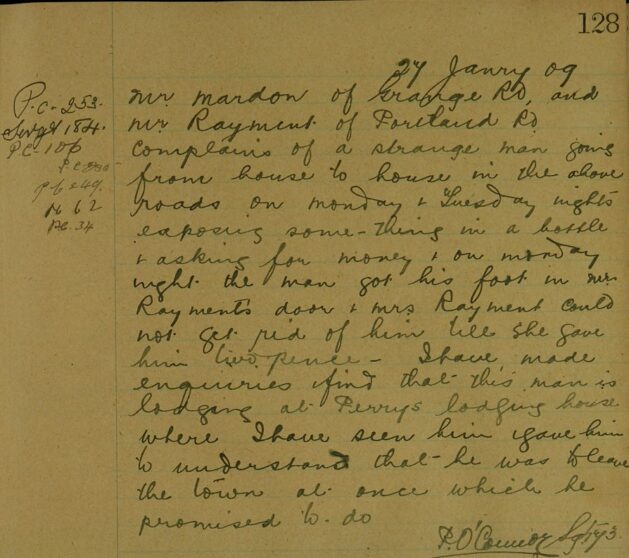 128
27 Janry 09
P.C. 253.
Sergt 184.
PC 106
P.C.
P.C. 249.
62
PC. 34
Mr Mardon of Grange Rd, and
Mr Rayment of Portland Rd
complains of a strange man going
from house to house in the above
roads on Monday & Tuesday nights
exposing some-thing in a bottle
& asking for money & on Monday
night the man got his foot in Mr
Rayment's door & Mrs Rayment could
not get rid of him till she gave
him twopence - I have made
enquiries & find that this man is
lodging at Perrys lodging house
where I have seen him & gave him
to understand that he was to leave
the town at once which he
promised to do
P. O'Connor